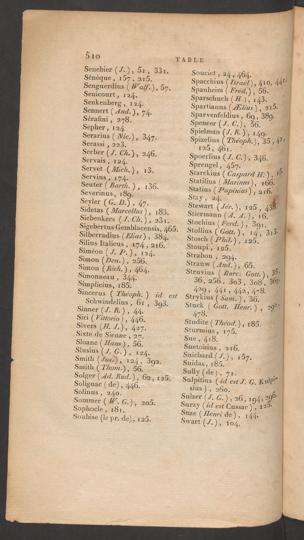 510
TABLE
Senebier (J.), 51, 331.
Sénèque, 157, 215.
Senguerdius (Wolf.), 57.
Senicourt, 124.
Senkenberg, 124.
Sennert (And.), 74.
Sérafini, 278.
Sepher, 124.
Serarius (Nic.), 347.
Serassi, 223.
Serber (J. Ch.), 246.
Servais, 124.
Servet (Mich.), 13.
Servius, 174.
Seuter (Barth.), 136.
Severinus, 189.
Seyler (G. D.), 47.
Sidetas (Marcellus), 183.
Siebenkees (J. Ch.), 231.
Sigebertus Gemblacensis, 465.
Silberradius (Elias), 384.
Silius Italicus, 174, 216.
Siméon (J. P.), 124.
Simon (Den.), 256.
Simon (Rich.), 464.
Simonneau, 344.
Simplicius, 185.
Sincerus (Théoph.) id est
Schwindelius, 61, 393.
Sinner (J. R.), 44.
Siri (Vittorio), 446.
Sivers (H. J.), 427.
Sixte de Sienne, 27.
Sloane (Hans), 56.
Slusius (J. G.), 124.
Smith (Jos.), 124, 392.
Smith (Thom.), 56.
Solger (Ad. Rud.), 62, 125.
Solignac (de), 446.
Solinus, 240.
Sommer (W. G.), 205.
Sophocle, 181.
Soubise (le pr. de), 125.
Souciet, 24, 464.
Spacchius (Israël), 410, 441.
Spanheim (Fred.), 56.
Sparschuch (H.), 143.
Spartianus (Ælius), 215.
Sparvenfeldius, 69, 389.
Spencer (J. C.), 56.
Spielman (J. R.), 149.
Spizelius (Théoph.), 35, 42,
125, 461.
Spoerlius (J. C.), 346.
Sprengel, 457.
Starckius (Caspard H.)
Statilius (Marinus), 166.
Statius (Papinius), 216.
Stay, 24.
Stewart (Jér.), 125, 438.
Stiermann (A. A.), 16.
Stochius (Ferd.), 391.
Stollius (Gott.), 14, 313.
Stosch (Phil.), 125.
Stoupi, 125.
Strabon, 294.
Strauw (And.), 65.
Struvius (Burc. Gott.), 35,
36, 256, 303, 308, 369,
429, 441, 442, 478.
Strykius (Sam.), 36.
Stuck (Gott. Henr.), 292,
478.
Studite (Théod.), 185.
Sturmius, 175.
Sue, 418.
Suetonius, 216.
Suichard (J.), 157.
Suidas, 185.
Sully (de), 71.
Sulpitius (id est J. G. Kulpi-
sius), 260.
Sulzer (J. G.), 26, 194, 296.
Surzy (id est Cussac), 125.
Suze (Henri de), 144.
Swart (J.), 104.